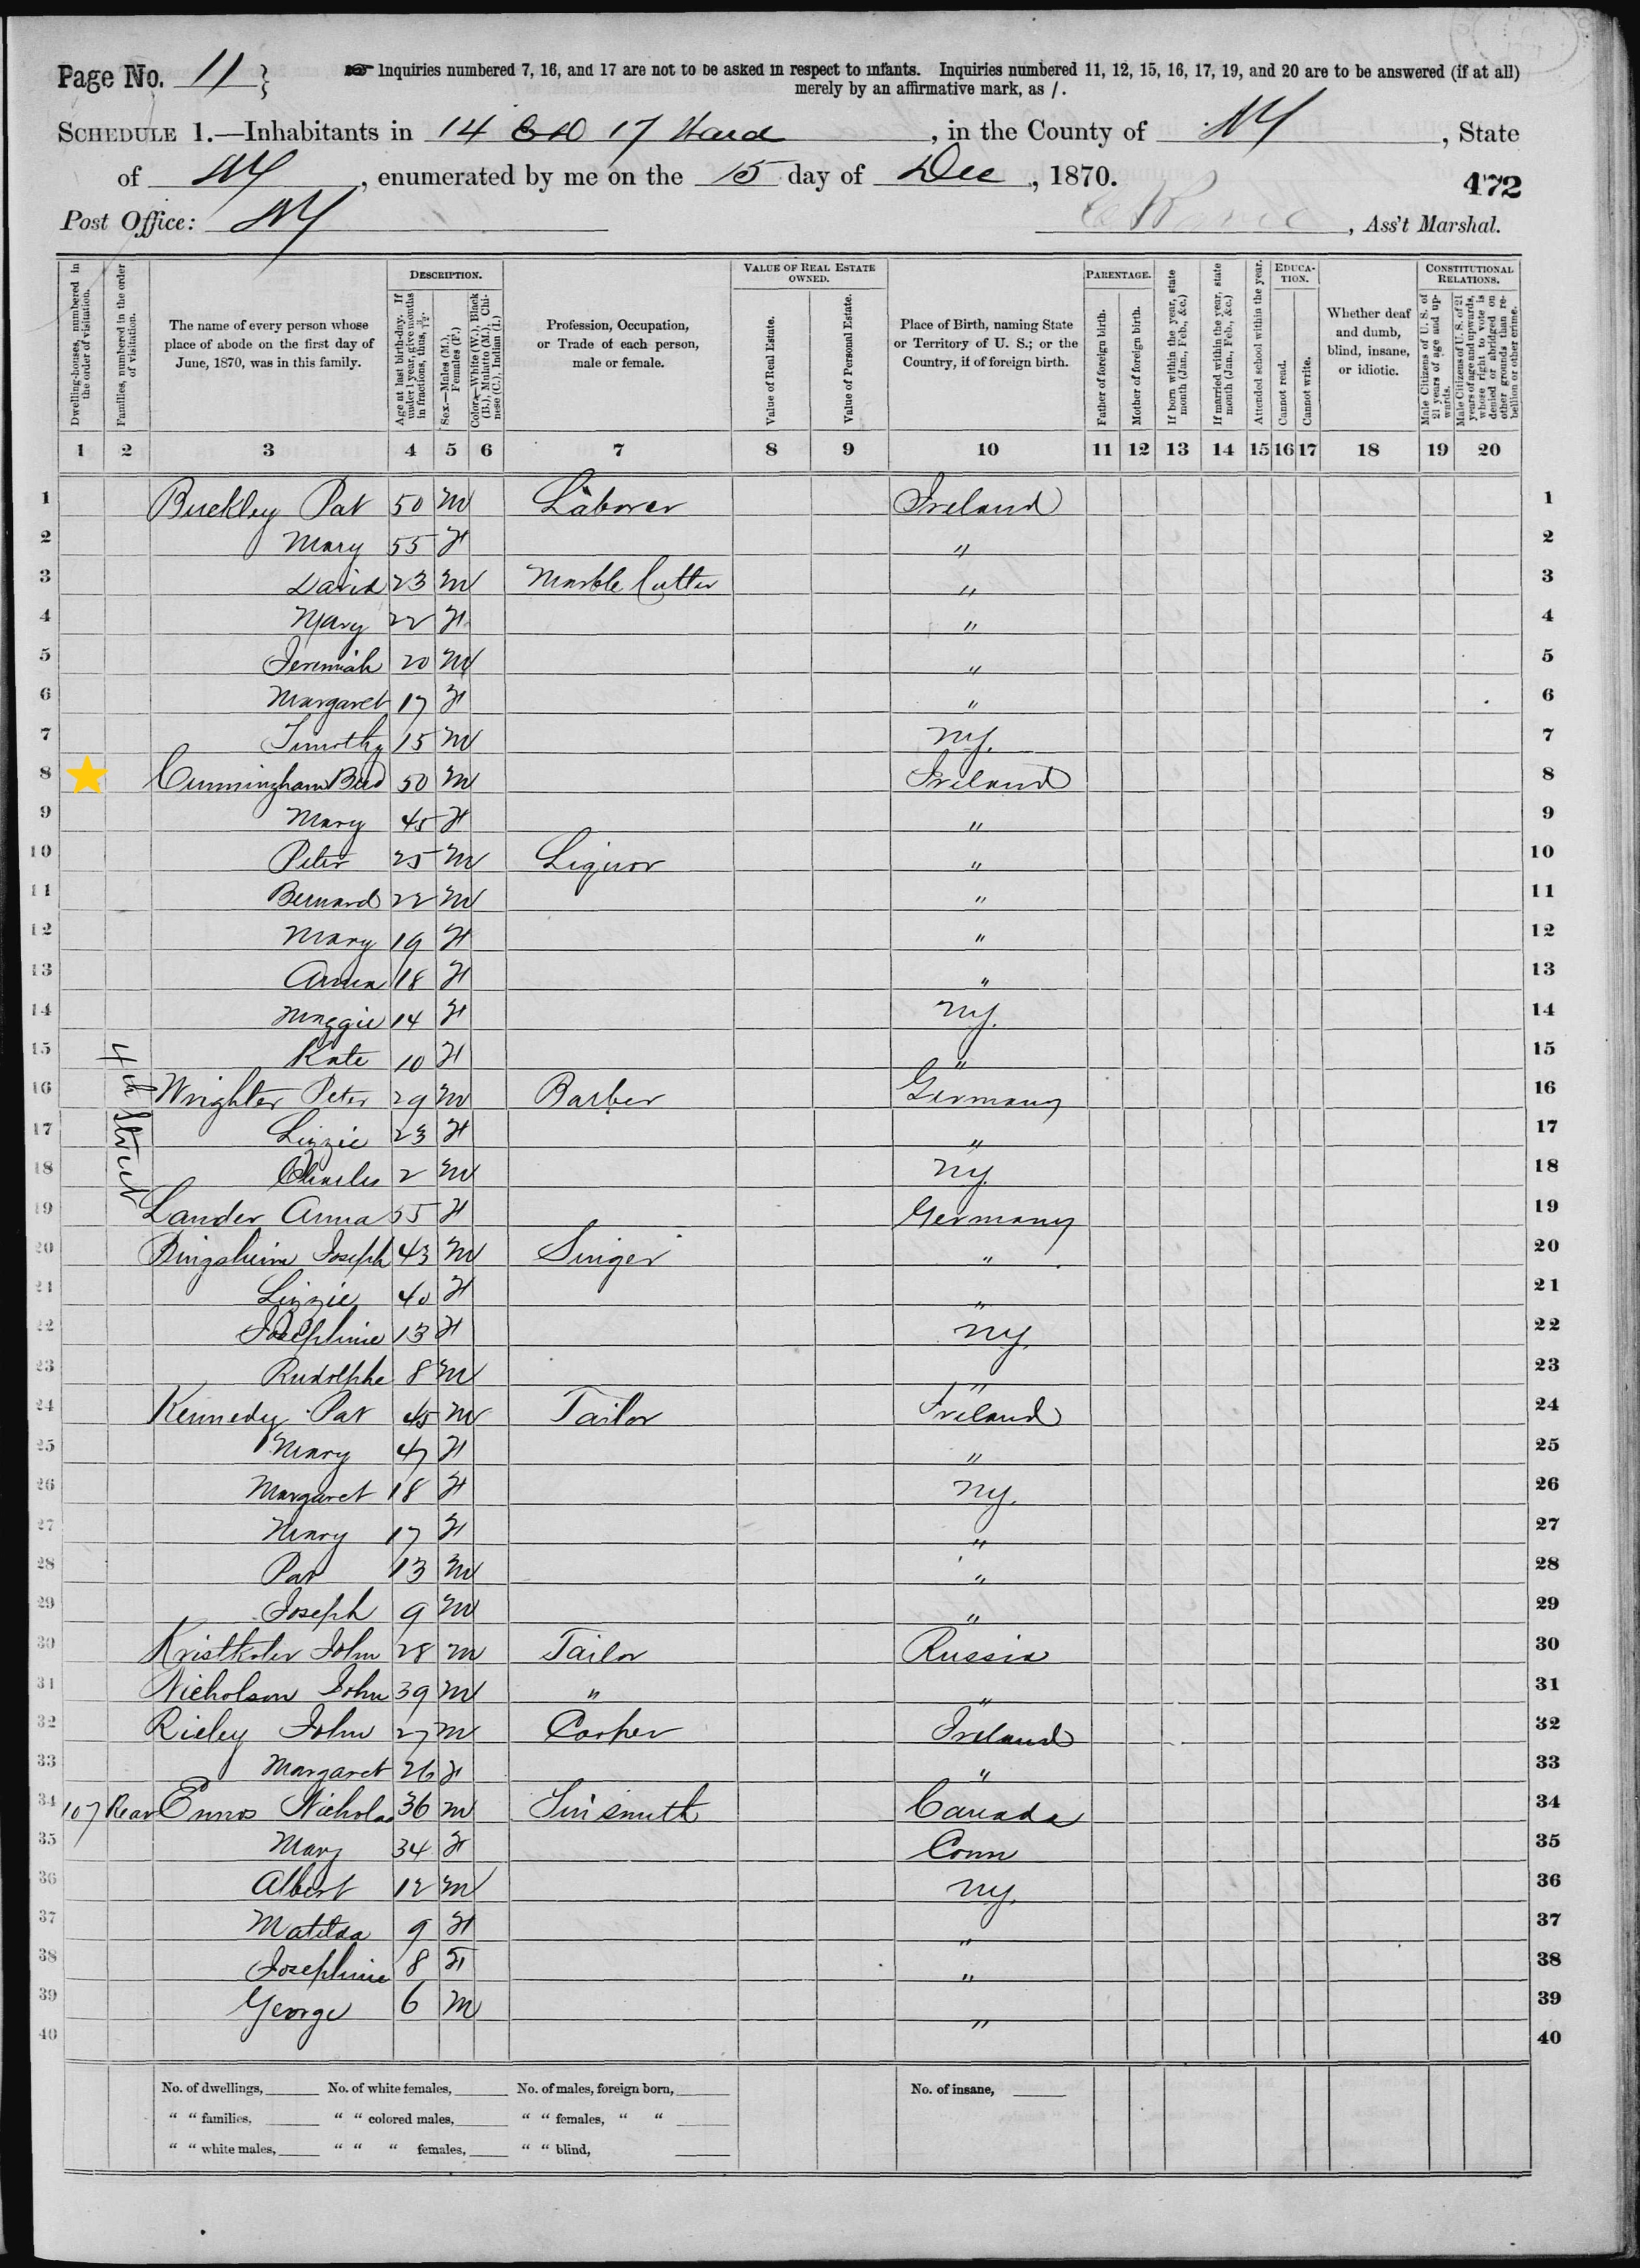 Page No. 11
Inquiries numbered 7, 16, and 17 are not to be asked in respect to infants. Inquiries numbered 11, 12, 15, 16, 17, 19, and 20 are to be answered (if at all)
merely by an affirmative mark, as /.
SCHEDULE 1.—Inhabitants in 14 ED 17 Ward, in the County of NY, State
of NY, enumerated by me on the 15 day of Dec, 1870.
472
Post Office: NY , Ass't Marshal.
Dwelling-houses, numbered in the order of visitation.
Families, numbered in the order of visitation.
The name of every person whose place of abode on the first day of June, 1870, was in this family.
DESCRIPTION.
Age at last birth-day. If under 1 year, give months in fractions, thus, 3/12.
Sex.—Males (M.), Females (F.)
Color.—White (W.), Black (B.), Mulatto (M.), Chinese (C.), Indian (I.)
Profession, Occupation, or Trade of each person, male or female.
VALUE OF REAL ESTATE OWNED.
Value of Real Estate.
Value of Personal Estate.
Place of Birth, naming State or Territory of U. S.; or the Country, if of foreign birth.
PARENTAGE.
Father of foreign birth.
Mother of foreign birth.
If born within the year, state month (Jan., Feb., &c.)
If married within the year, state month (Jan., Feb., &c.)
Attended school within the year.
EDUCATION.
Cannot read.
Cannot write.
Whether deaf and dumb, blind, insane, or idiotic.
CONSTITUTIONAL RELATIONS.
Male Citizens of U. S. of 21 years of age and upwards.
Male Citizens of U. S. of 21 years of age and upwards, whose right to vote is denied or abridged on other grounds than rebellion or other crime.
1 2 3 4 5 6 7 8 9 10 11 12 13 14 15 16 17 18 19 20
1 Buckley Pat 50 M Laborer Ireland 1
2 Mary 55 F " 2
3 David 23 M Marble Cutter " 3
4 Mary 22 F " 4
5 Jeremiah 20 M " 5
6 Margaret 17 F " 6
7 Timothy 15 M NY. 7
8 Cunningham 50 M Ireland 8
9 Mary 45 F " 9
10 Peter 25 M Liquor " 10
11 Bernard 22 M " 11
12 Mary 19 F " 12
13 Anna 18 F " 13
14 Maggie 14 F NY. 14
15 Kate 10 F " 15
4th Street
16 Wrighter Peter 29 M Barber Germany 16
17 Lizzie 23 F " 17
18 Charles 2 M NY. 18
19 Lander Anna 55 F Germany 19
20 Bingsheim Joseph 43 M Singer " 20
21 Lizzie 40 F " 21
22 Josephine 13 F NY. 22
23 Rudolphe 8 M " 23
24 Kennedy Pat 45 M Tailor Ireland 24
25 Mary 47 F " 25
26 Margaret 18 F NY. 26
27 Mary 17 F " 27
28 Pat 13 M " 28
29 Joseph 9 M " 29
30 John 28 M Tailor Russia 30
31 Nicholson John 39 M " " 31
32 Rieley John 27 M Cooper Ireland 32
33 Margaret 26 F " 33
34 107 Rear Ennos Nicholas 36 M Tinsmith Canada 34
35 Mary 34 F Conn 35
36 Albert 12 M NY. 36
37 Matilda 9 F " 37
38 Josephine 8 F " 38
39 George 6 M " 39
40 40
No. of dwellings, No. of white females, No. of males, foreign born, No. of insane,
" " families, " " colored males, " " females, " "
" " white males, " " " females, " " blind,